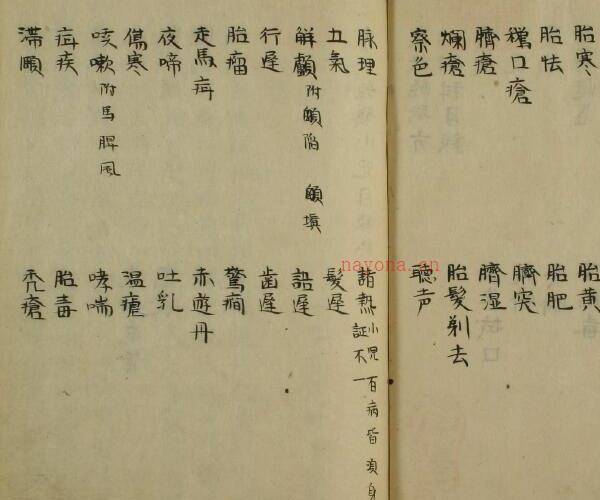 胎寒
胎黄
胎怯
胎肥
臍突
臍瘡
臍湿
爛瘡
胎髮剃去
察色
聴声
脉理
諸熱小児百病皆須身
証不一
五氣
髮遅
解顱附顖陷 顖填
語遅
行遅
歯遅
胎瘤
驚癇
走馬疳
赤遊丹
夜啼
吐乳
傷寒
温瘧
咳嗽附馬脾風
哮喘
疳疾
胎毒
滞頤
禿瘡
nayona.cn